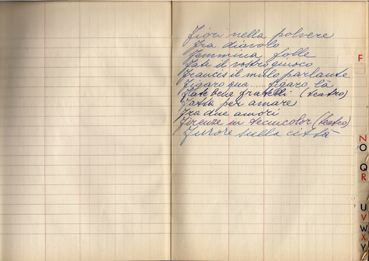 Fiori nella polvere
Fra diavolo
Femmina folle
Fate il vostro giuoco
Francis il mulo parlante
Figaro qua figaro là
Fatebene fratelli (teatro)
Fatta per amare
Fra due amori
Firenze in tecnicolor (teatro)
Furore sulla città
F
N
O
Q
R
U
V
W
X
Y